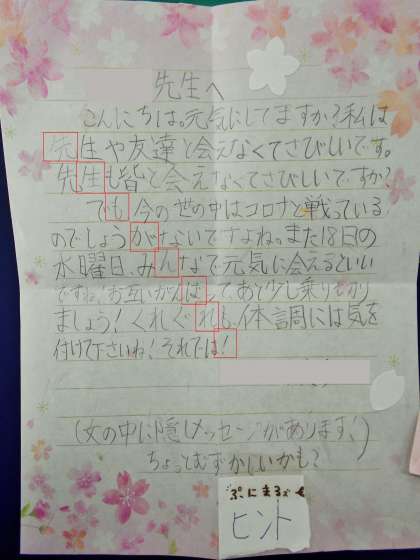 先生へ
こんにちは。元気にしてますか?私は
先生や友達と会えなくてさびしいです。
先生も皆と会えなくてさびしいですか?
でも今の世の中はコロナと戦っている
のでしょうがないですよね。また18日の
水曜日、みんなで元気に会えるといい
ですね!お互いがんばって、あと少し乗りきり
ましょう!くれぐれも、体調には気を
付けて下さいね!それでは!
(文の中に隠しメッセージがあります!)
ちょっとむずかしいかも?
ぷにまるも
ヒント